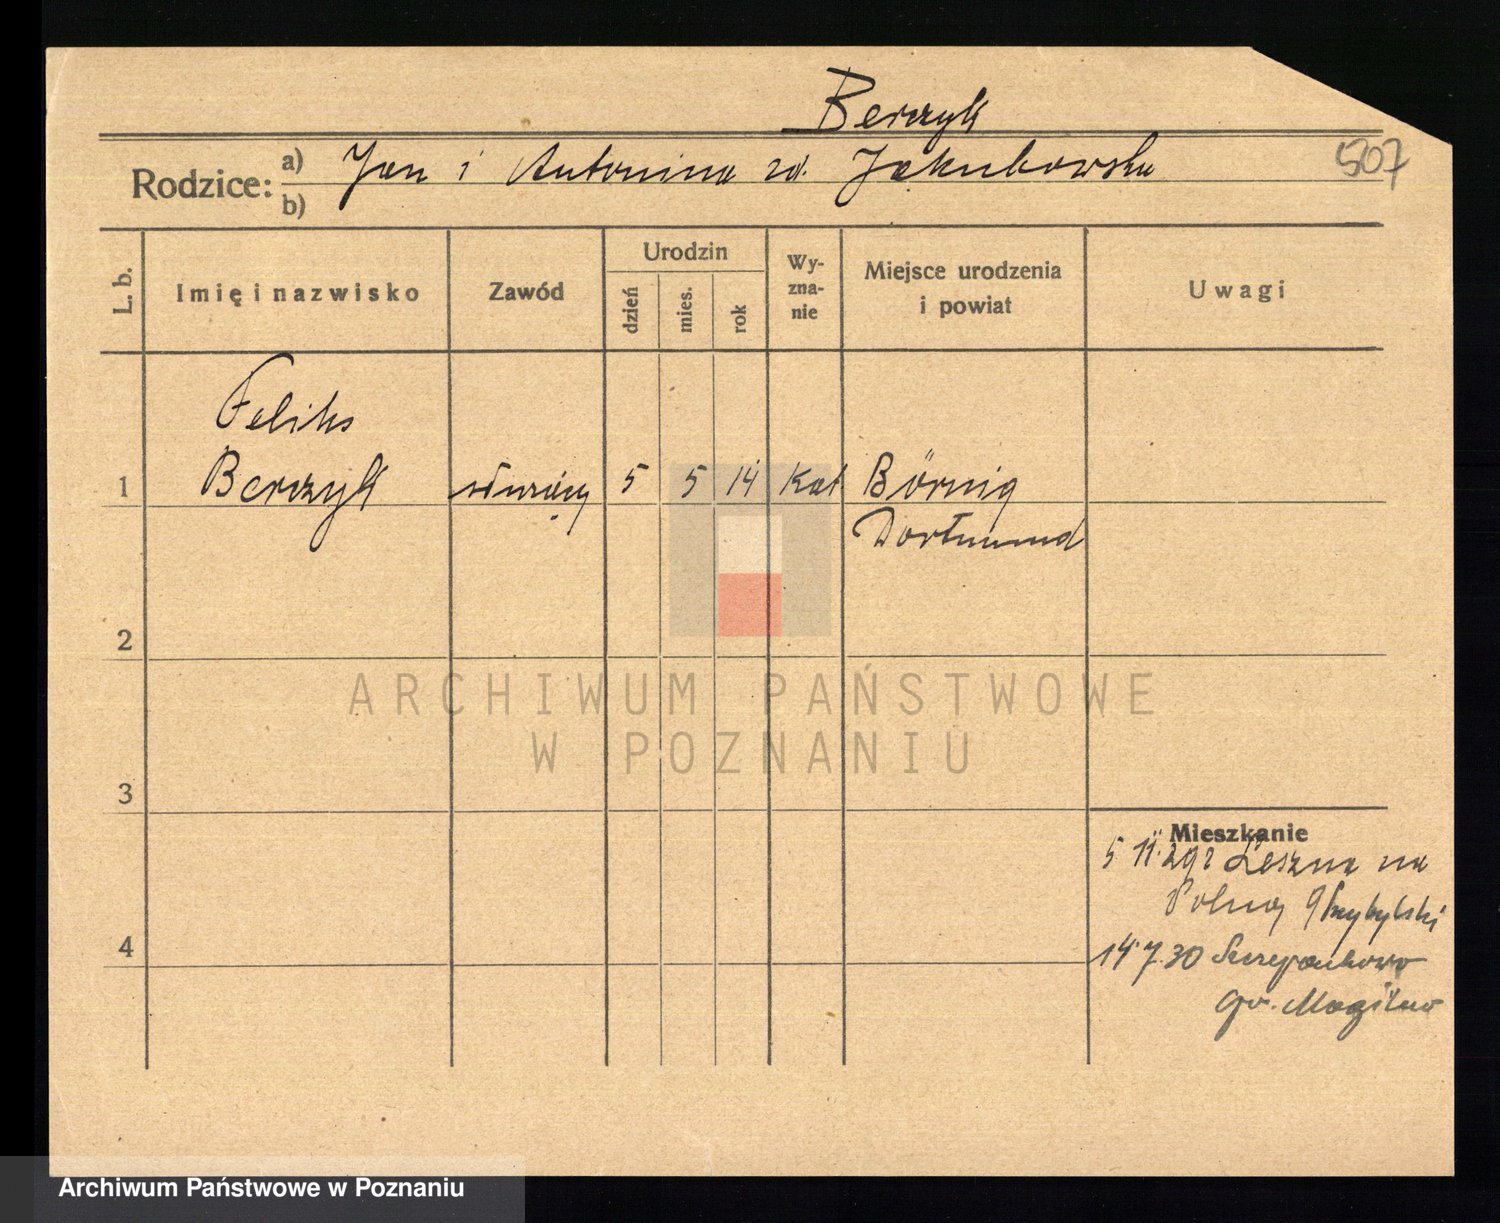 Berczyk
507
Rodzice: a) Jan i Antonina zd. Jakubowska
b)
L. b.
Imię i nazwisko
Zawód
Urodzin
dzień
mies.
rok
Wy-
zna-
nie
Miejsce urodzenia
i powiat
Uwagi
Feliks
1 Berczyk służący 5 5 14 Kat Börnig
Dortmund
2
ARCHIWUM PAŃSTWOWE
W POZNANIU
3
Mieszkanie
5 11. 29 z Leszna na
Polną Przybylski
4
14 7. 30 Szczepankowo
pow. Mogilno
Archiwum Państwowe w Poznaniu